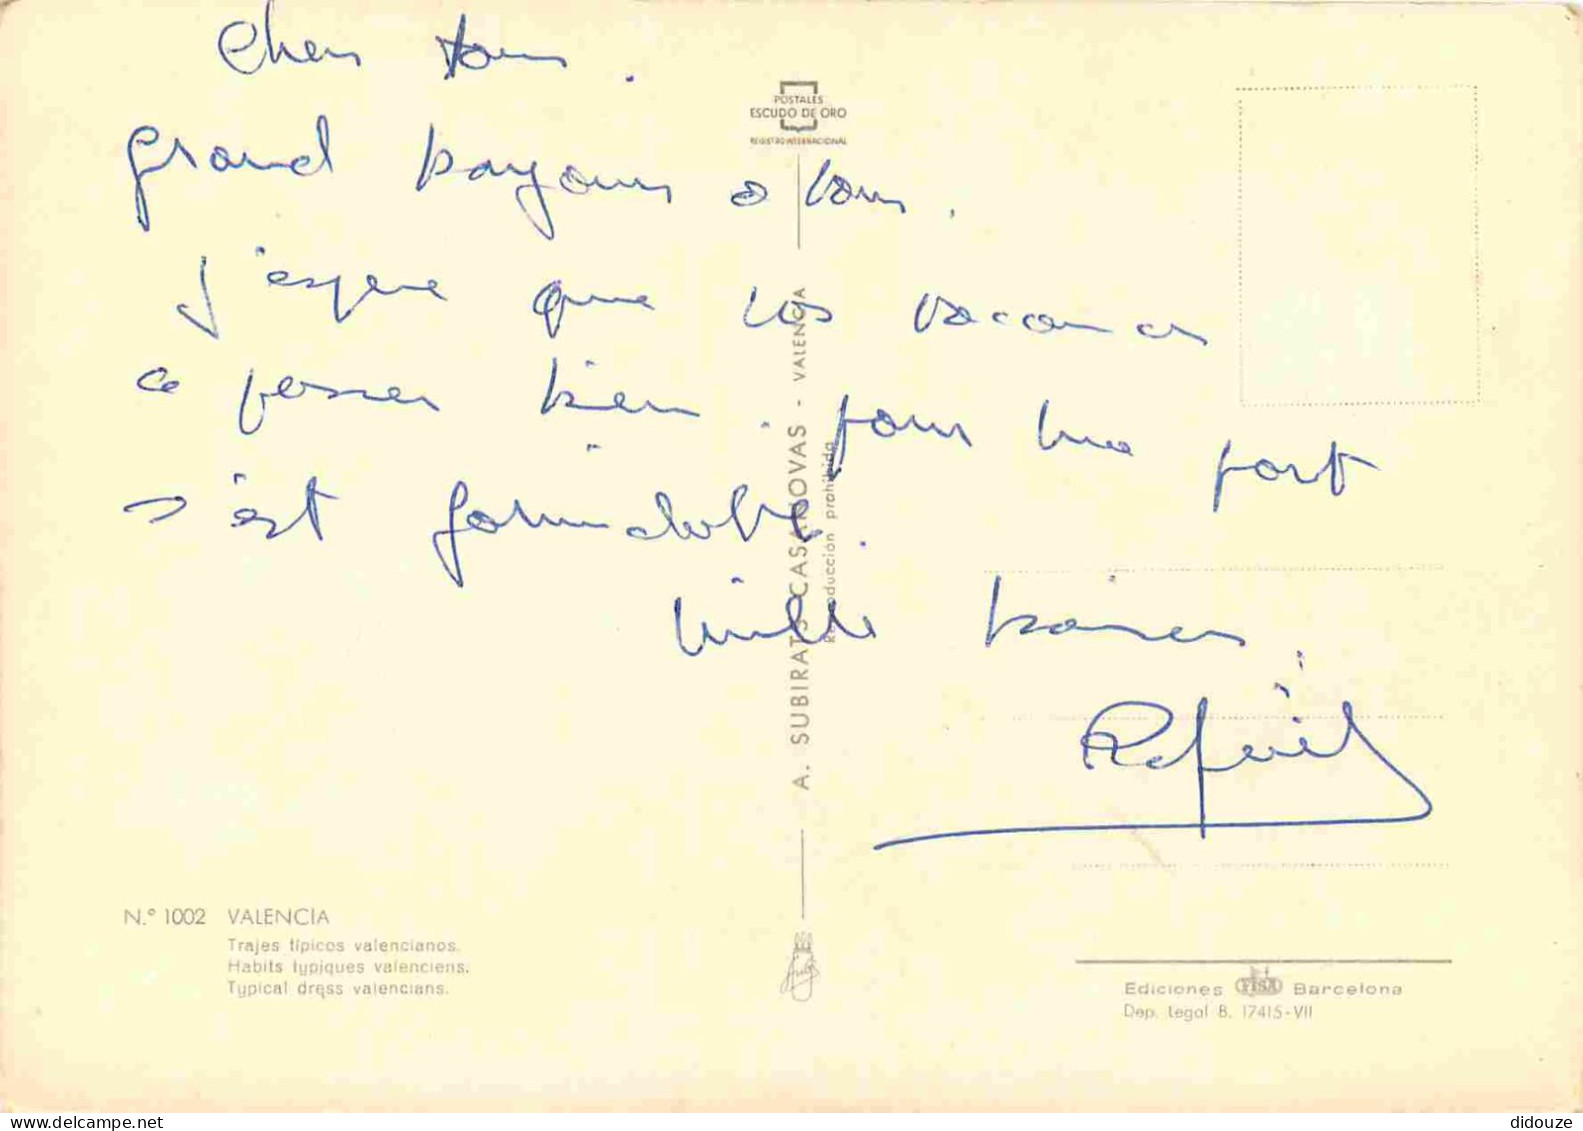 Chers tous.
grand bonjour a tous.
J'espere que vos vacances
ce passer bien. pour ma part
s'est formidable.
mille baises.
POSTALES
ESCUDO DE ORO
REGISTRO INTERNACIONAL
A. SUBIRATS CASANOVAS - VALENCIA
Reproducción prohibida
N.° 1002 VALENCIA
Trajes típicos valencianos.
Habits typiques valenciens.
Typical dress valencians.
Ediciones FISA Barcelona
Dep. Legal B. 17415-VII
didouze